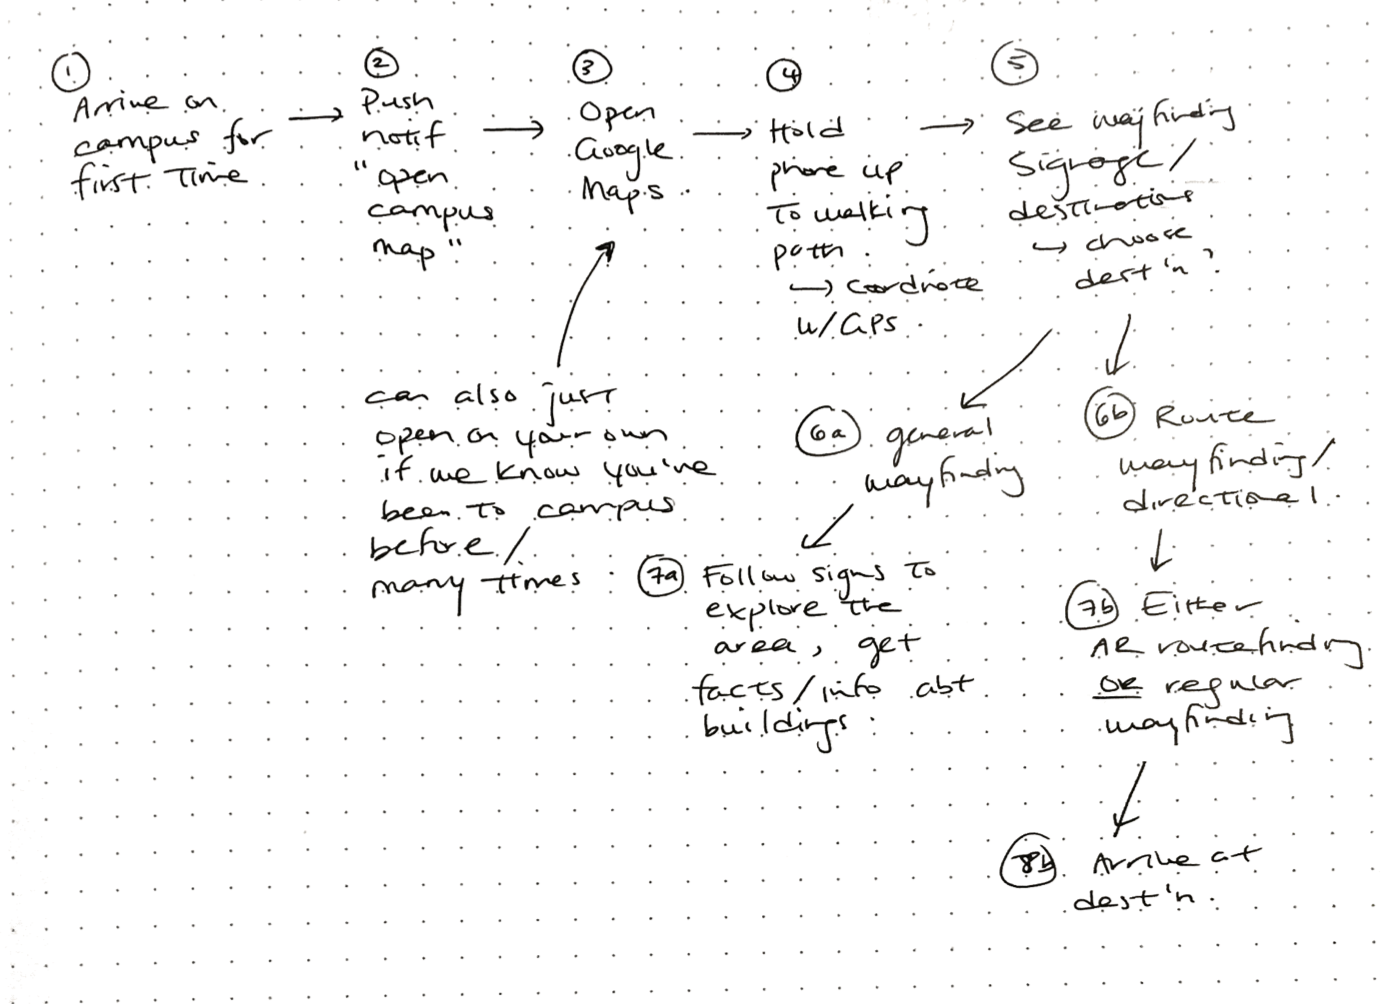 1
Arrive on
campus for
first time
2
Push
notif
"open
campus
map"
3
Open
Google
Maps
4
Hold
phone up
to walking
path.
↳ coordinate
w/ GPS.
5
See wayfinding
Signage/
destinations
↳ choose
dest'n?
can also just
open on your own
if we know you've
been to campus
before/
many times
6a general
wayfinding
6b Route
wayfinding/
directional.
7a Follow signs to
explore the
area, get
facts/info abt
buildings
7b Either
AR routefinding
OR regular
wayfinding
8b Arrive at
dest'n.